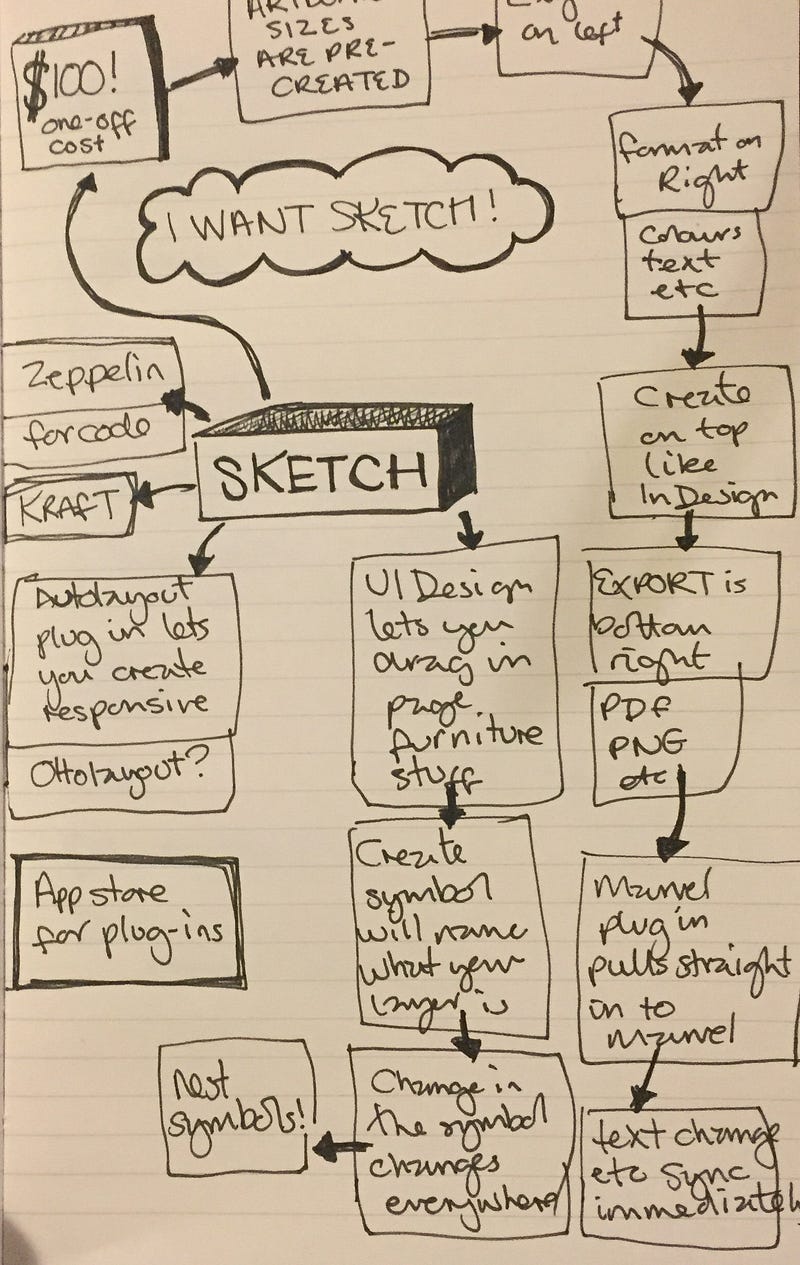 $100!
one-off
cost
SIZES
ARE PRE-
CREATED
on left
format on
Right
colours
text
etc
I WANT SKETCH!
Zeppelin
for code
KRAFT
SKETCH
Create
on top
like
InDesign
Autolayout
plug in lets
you create
responsive
Ottolayout?
UI Design
lets you
drag in
page
furniture
stuff
EXPORT is
bottom
right
PDF
PNG
etc
App store
for plug-ins
Create
symbol
will name
what your
layer is
Marvel
plug in
pulls straight
in to
Marvel
Nest
symbols!
Change in
the symbol
changes
everywhere
text change
etc sync
immediately